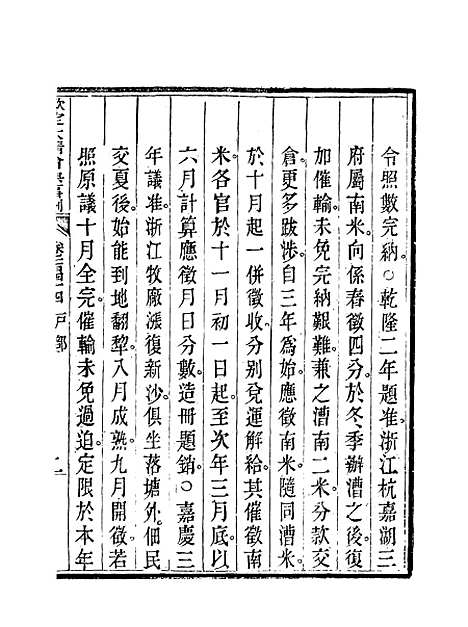 令照數完納○乾隆二年題准浙江杭嘉湖三
府屬南米向係春徵四分於冬季辦漕之後復
加催輸未免完納艱難兼之漕南二米分款交
倉更多跋涉自三年為始應徵南米隨同漕米
於十月起一併徵收分別兌運解給其催徵南
米各官於十一月初一日起至次年三月底以
六月計算應徵月日分數造冊題銷○嘉慶三
年議准浙江牧廠漲復新沙俱坐落塘外佃民
交夏後始能到地翻犂八月成熟九月開徵若
照原議十月全完催輸未免過迫定限於本年
欽定大清會典事例 戶部